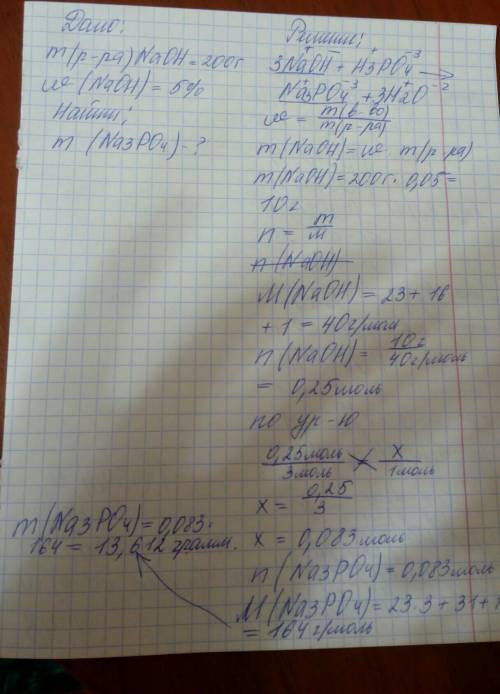 Дано:
m(р-ра) NaOH = 200г
w (NaOH) = 5%
Найти:
m (Na3PO4) - ?
Решение:
3NaOH + H3PO4 →
Na3PO4 + 3H2O
w = m(в-во) / m(р-ра)
m(NaOH) = w · m(р-ра)
m(NaOH) = 200г · 0,05 =
10г
n = m / M
n (NaOH)
M(NaOH) = 23 + 16
+ 1 = 40г/мол
n(NaOH) = 10г / 40г/моль
= 0,25моль
по ур-ю
0,25моль / 3моль = x / 1моль
x = 0,25 / 3
x = 0,083моль
n(Na3PO4) = 0,083моль
M(Na3PO4) = 23·3 + 31 +
= 164г/моль
m(Na3PO4) = 0,083 ·
164 = 13,612 грамм.